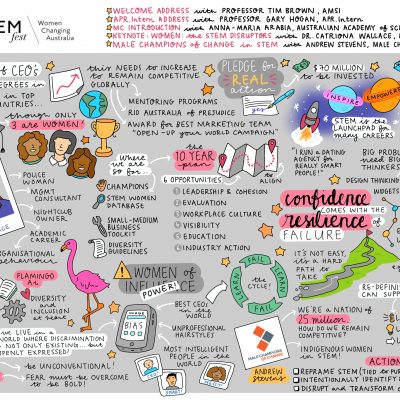 EM
fest
Women
Changing
Australia
WELCOME ADDRESS with PROFESSOR TIM BROWN, AMSI
APR.Intern ADDRESS with PROFESSOR GARY HOGAN, APR.Intern
MC INTRODUCTION with ANNA-MARIA ARABIA, AUSTRALIAN ACADEMY OF SC
KEYNOTE: WOMEN: THE STEM DISRUPTORS with DR. CATRIONA WALLACE,
MALE CHAMPIONS OF CHANGE IN STEM with ANDREW STEVENS, MALE CH
OF CEO'S
DEGREES in
in TOP
COUNTRIES...
though only
3 are WOMEN!
this NEEDS to INCREASE
to REMAIN COMPETITIVE
GLOBALLY
MENTORING PROGRAMS
RID AUSTRALIA OF PREJUDICE
AWARD FOR BEST MARKETING TEAM
"OPEN-UP your WORLD CAMPAIGN"
PLEDGE for
REAL
action
$70 MILLION
to be INVESTED
INSPIRE
EMPOWER
STEM is the
LAUNCHPAD for
many CAREERS
"I RUN a DATING
AGENCY for
REALLY SMART
PEOPLE!"
BIG PROBL
need BIG
THINKERS
DESIGN THINKING
WIDGETS
POLICE
WOM
MGMT
CONSULTANT
NIGHTCLUB
OWNER
ACADEMIC
CAREER
Where
we are
so far
CHAMPIONS
STEM WOMEN
DATABASE
SMALL-MEDIUM
BUSINESS
TOOLKIT
DIVERSITY
GUIDELINES
the
10 YEAR
plan
to
ALIGN
6 OPPORTUNITIES
LEADERSHIP & COHESION
EVALUATION
WORKPLACE CULTURE
VISIBILITY
EDUCATION
INDUSTRY ACTION
confidence
COMES WITH THE
resilience
of
FAILURE
IT'S NOT EASY,
it's a HARD
PATH to
TAKE
RE-DEFINI
CAN SUPP
ORGANISATIONAL
BEHAVIOUR
FLAMINGO
Ai
DIVERSITY
and
INCLUSION
at scale
WE LIVE in a
WORLD WHERE DISCRIMINATION
NOT ONLY EXISTING... but
OPENLY EXPRESSED!
be UNCONVENTIONAL!
FEAR must be OVERCOME
to BE BOLD!
WOMEN OF
INFLUENCE
POWER!
BIAS
BEST CEOs
in the
WORLD
UNPROFESSIONAL
HAIRSTYLES
MOST INTELLIGENT
PEOPLE in the
WORLD
FAIL
LEARN
FAIL
LEARN
the
CYCLE!
MALE CHAMPIONS
OF CHANGE
Andrew
Stevens
WE'RE a NATION
of
25 million
HOW do WE REMAIN
COMPETITIVE?
INDIGENOUS WOMEN
in STEM!
ACTION
REFRAME STEM (TIED to PUR
INTENTIONALLY IDENTIFY
DISRUPT and TRANSFORM